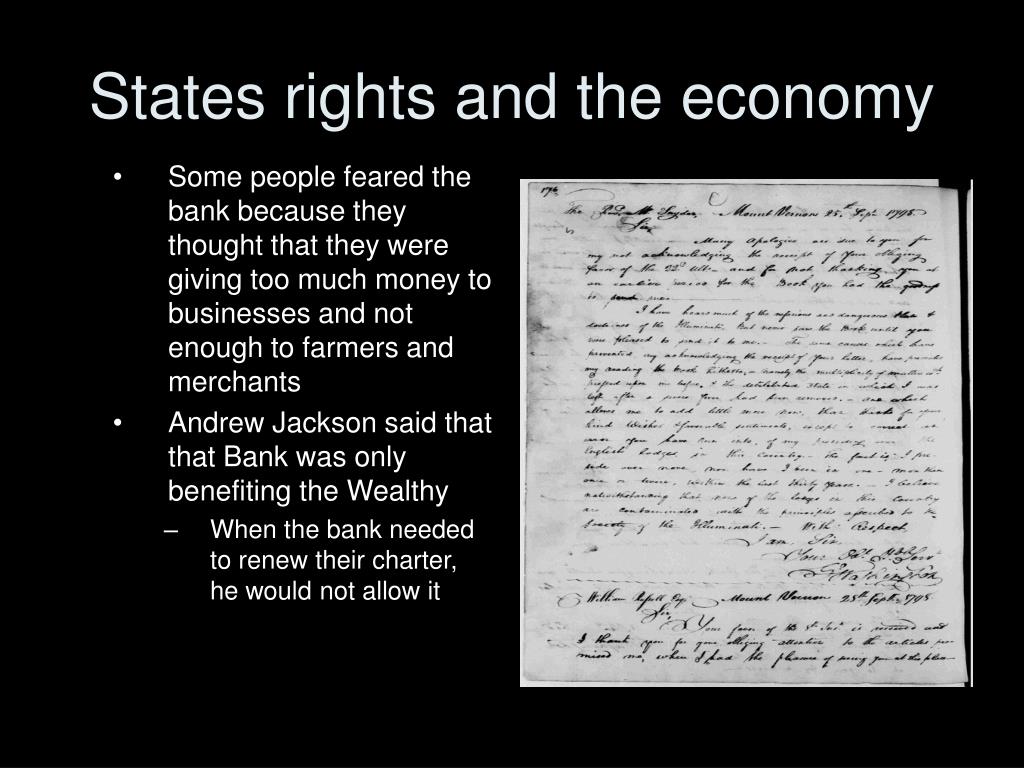 States rights and the economy
• Some people feared the
bank because they
thought that they were
giving too much money to
businesses and not
enough to farmers and
merchants
• Andrew Jackson said that
that Bank was only
benefiting the Wealthy
– When the bank needed
to renew their charter,
he would not allow it
Mount Vernon 25th Sept
Sir,
Many apologies are due to you for
my not acknowledging the receipt of your obliging
favor of the 22d Ult. and for not thanking you at
an earlier for the Book you had the goodness
to send me.
I have heard much of the nefarious and dangerous
doctrines of the Illuminati, but never saw the Book until you
were pleased to send it to me. The same causes which have
prevented my acknowledging the receipt of your letter, have prevented
my reading the Book hitherto, namely the multiplicity of matters
pressed upon me before, & the debilitated state in which I was
left after a fever had been removed. And which
allows me to add little more now, than thanks for your
kind wishes & favorable sentiments, except to correct an
error you have run into, of my presiding over the
English lodges in this Country. The fact is, I preside
over none, nor have I been in one more than
once or twice, within the last thirty years. I believe
notwithstanding that none of the lodges in this Country
are contaminated with the principles ascribed to the
Society of the Illuminati. With Respect
I am Sir
Your
Go Washington
William Russell Esq Mount Vernon 28th Sept
Sir,
Your favor of the is received and
I thank you for your obliging attention to the articles
me, when I had the pleasure of seeing you at this